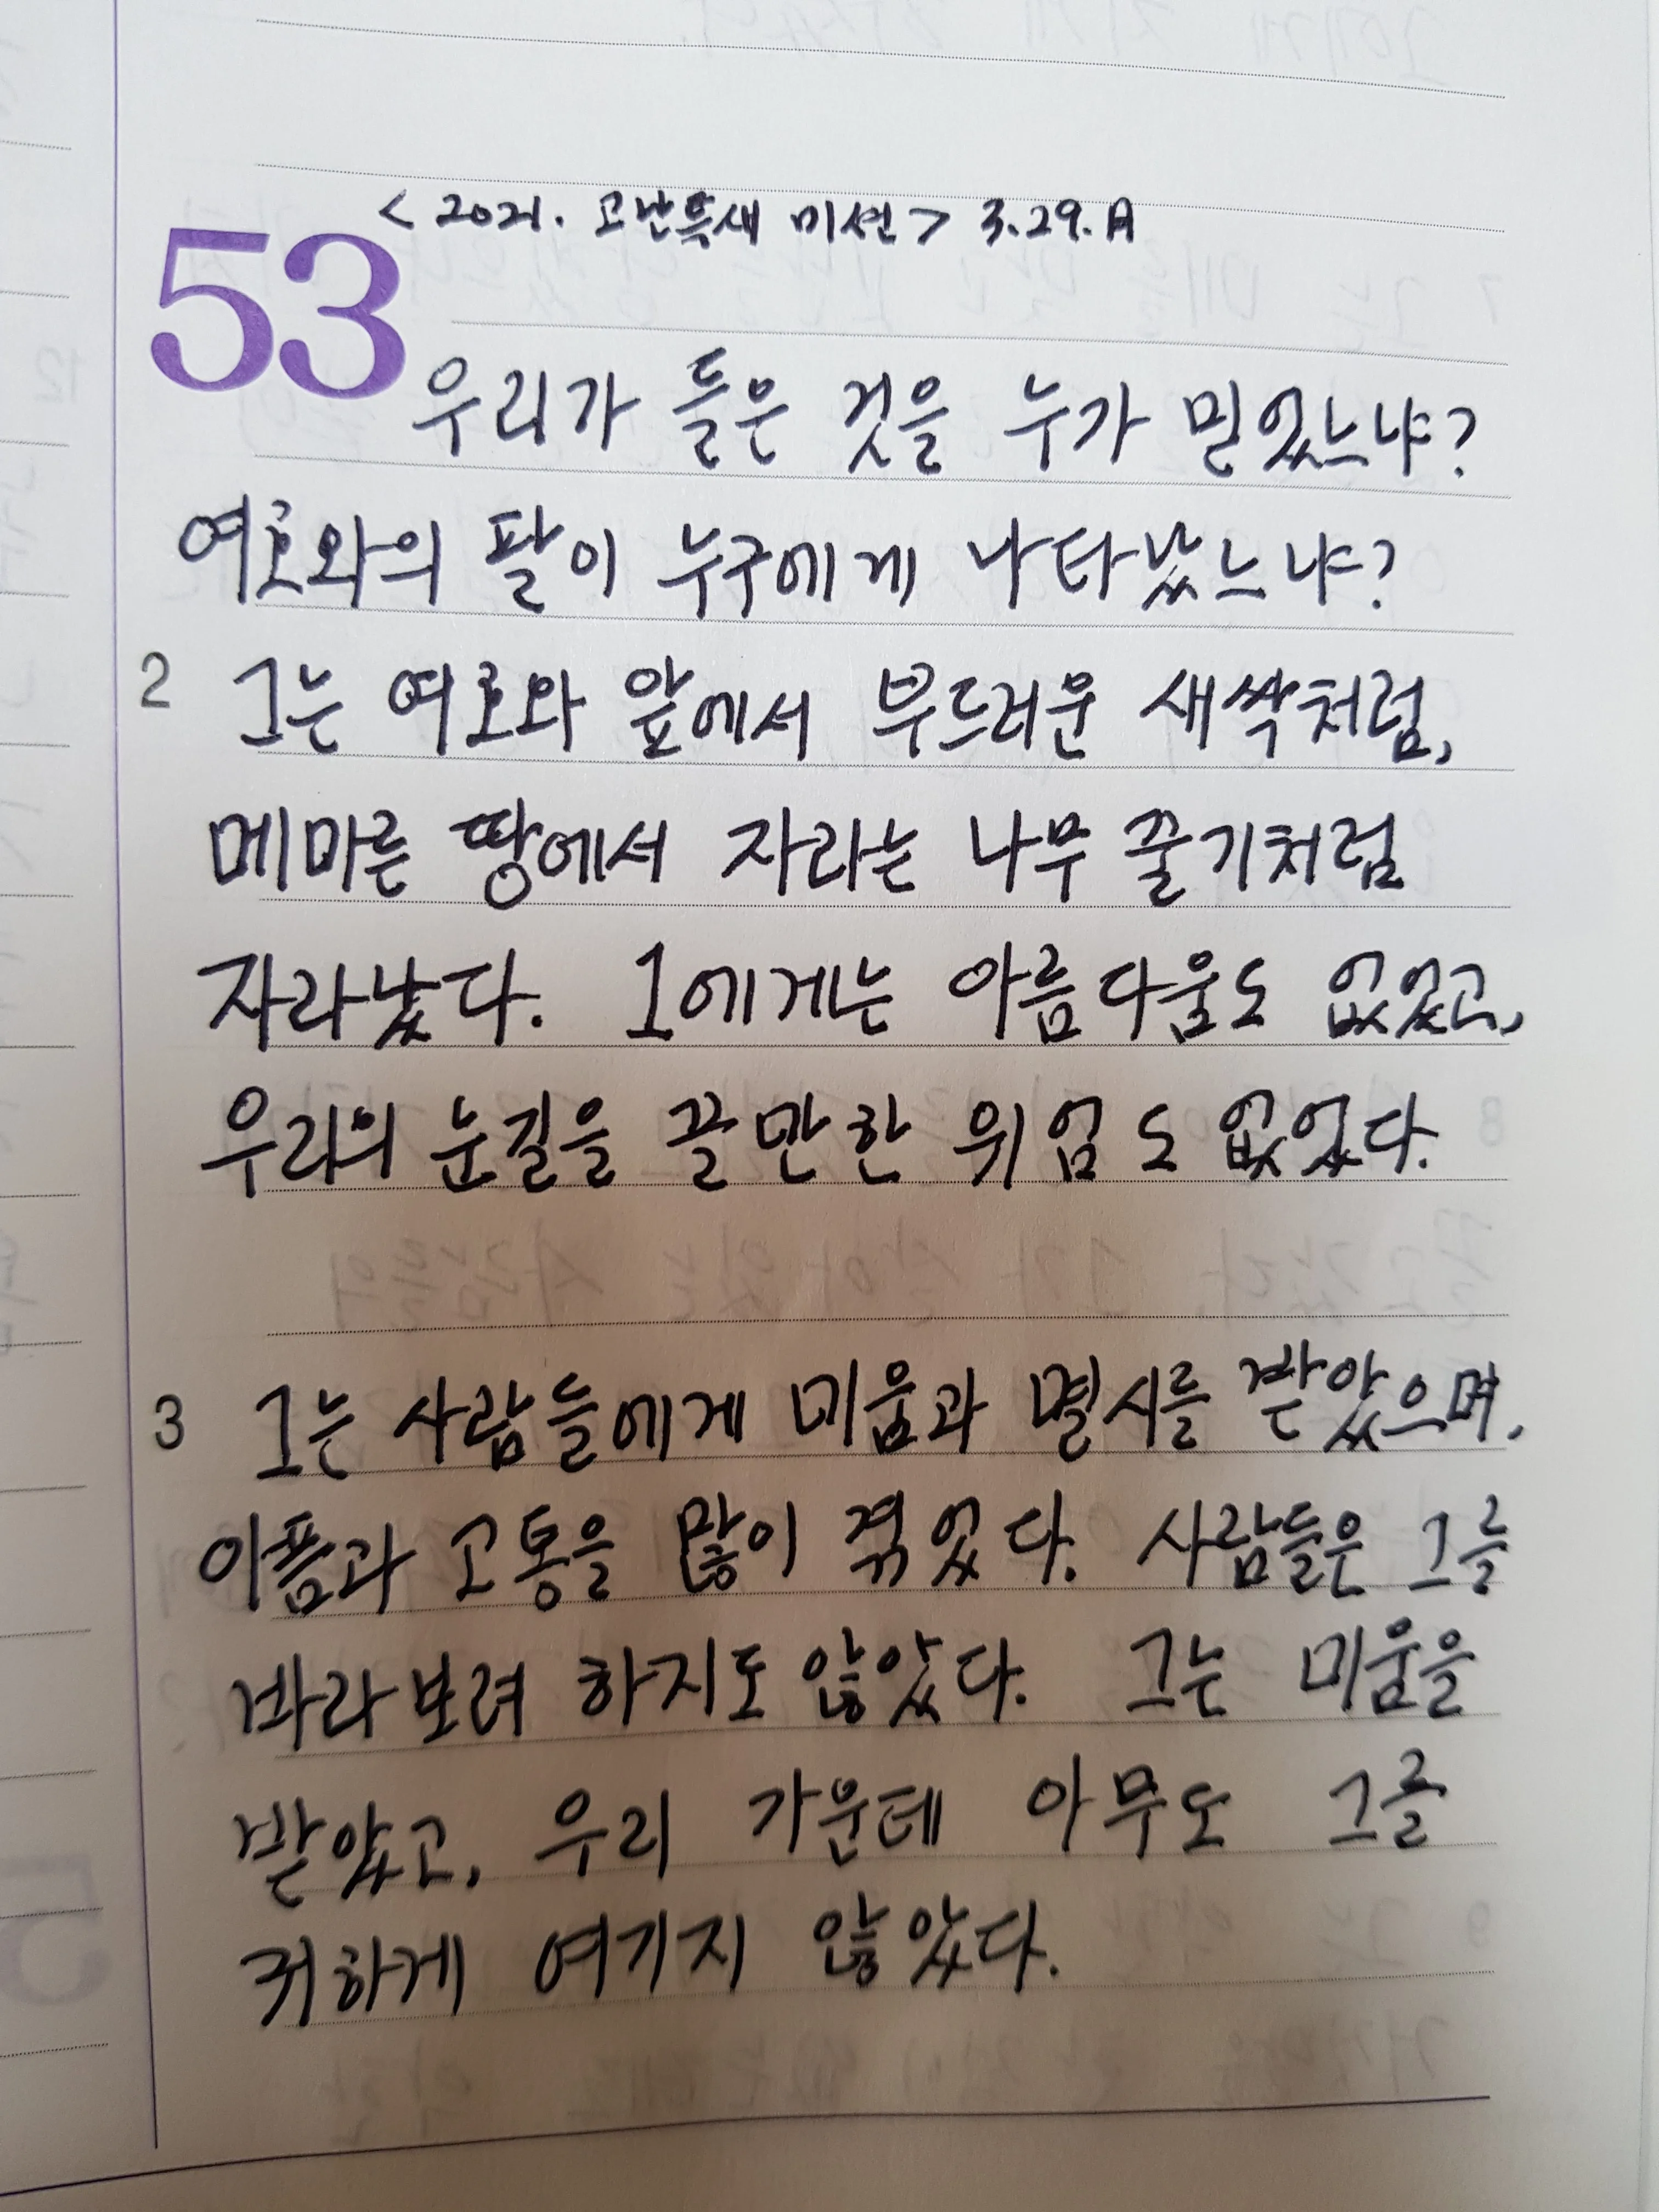 < 2021. 고난특새 미션 > 3.29.A
53
우리가 들은 것을 누가 믿었느냐?
여호와의 팔이 누구에게 나타났느냐?
2 그는 여호와 앞에서 부드러운 새싹처럼,
메마른 땅에서 자라는 나무 줄기처럼
자라났다. 그에게는 아름다움도 없었고,
우리의 눈길을 끌만한 위엄도 없었다.
3 그는 사람들에게 미움과 멸시를 받았으며,
아픔과 고통을 많이 겪었다. 사람들은 그를
바라보려 하지도 않았다. 그는 미움을
받았고, 우리 가운데 아무도 그를
귀하게 여기지 않았다.